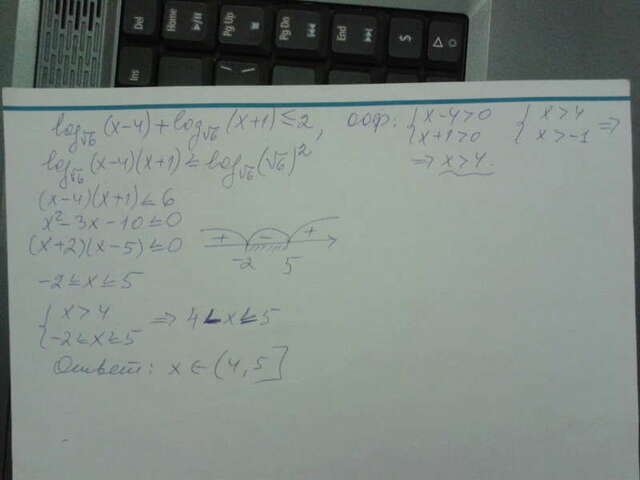 Del
Home
Pg Up
Pg Dn
End
$
Ins
log√6 (x-4) + log√6 (x+1) ≤ 2, ООФ: { x-4>0 { x>4 ⇒
{ x+1>0 { x>-1
log√6 (x-4)(x+1) ≤ log√6 (√6)² ⇒ x>4.
(x-4)(x+1) ≤ 6
x²-3x-10 ≤ 0
(x+2)(x-5) ≤ 0 + - +
-2 5
-2 ≤ x ≤ 5
{ x>4 ⇒ 4 < x ≤ 5
{ -2 ≤ x ≤ 5
Ответ: x ∈ (4,5]